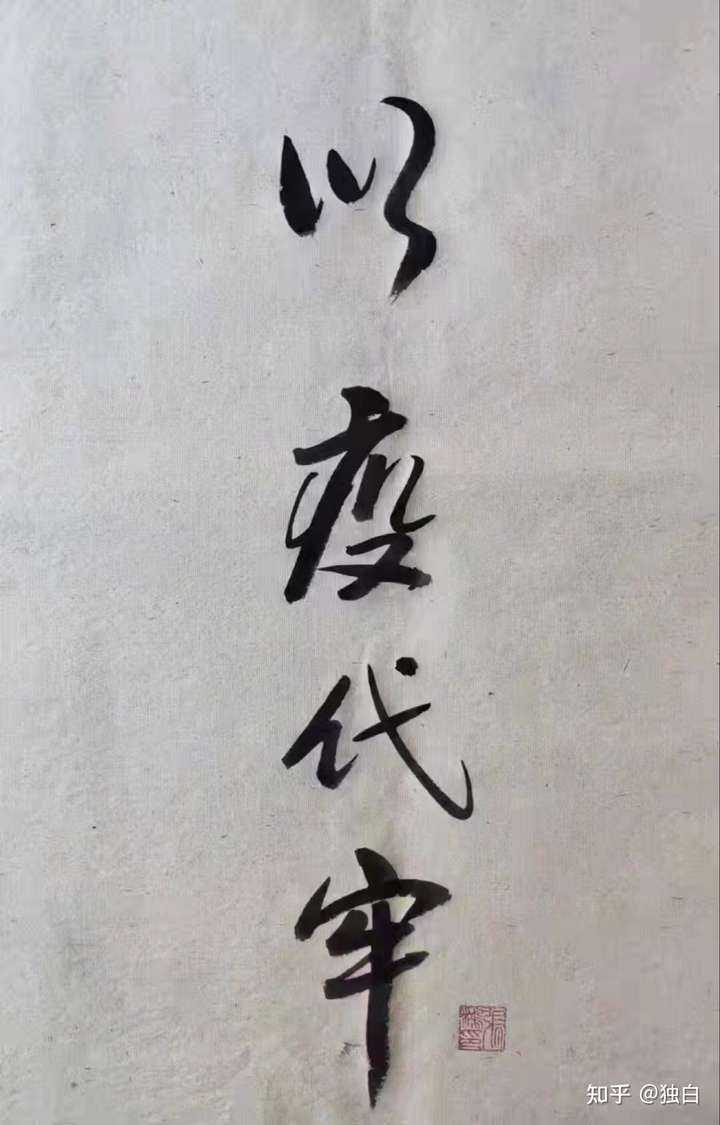 以疫代牢
知乎 @独白